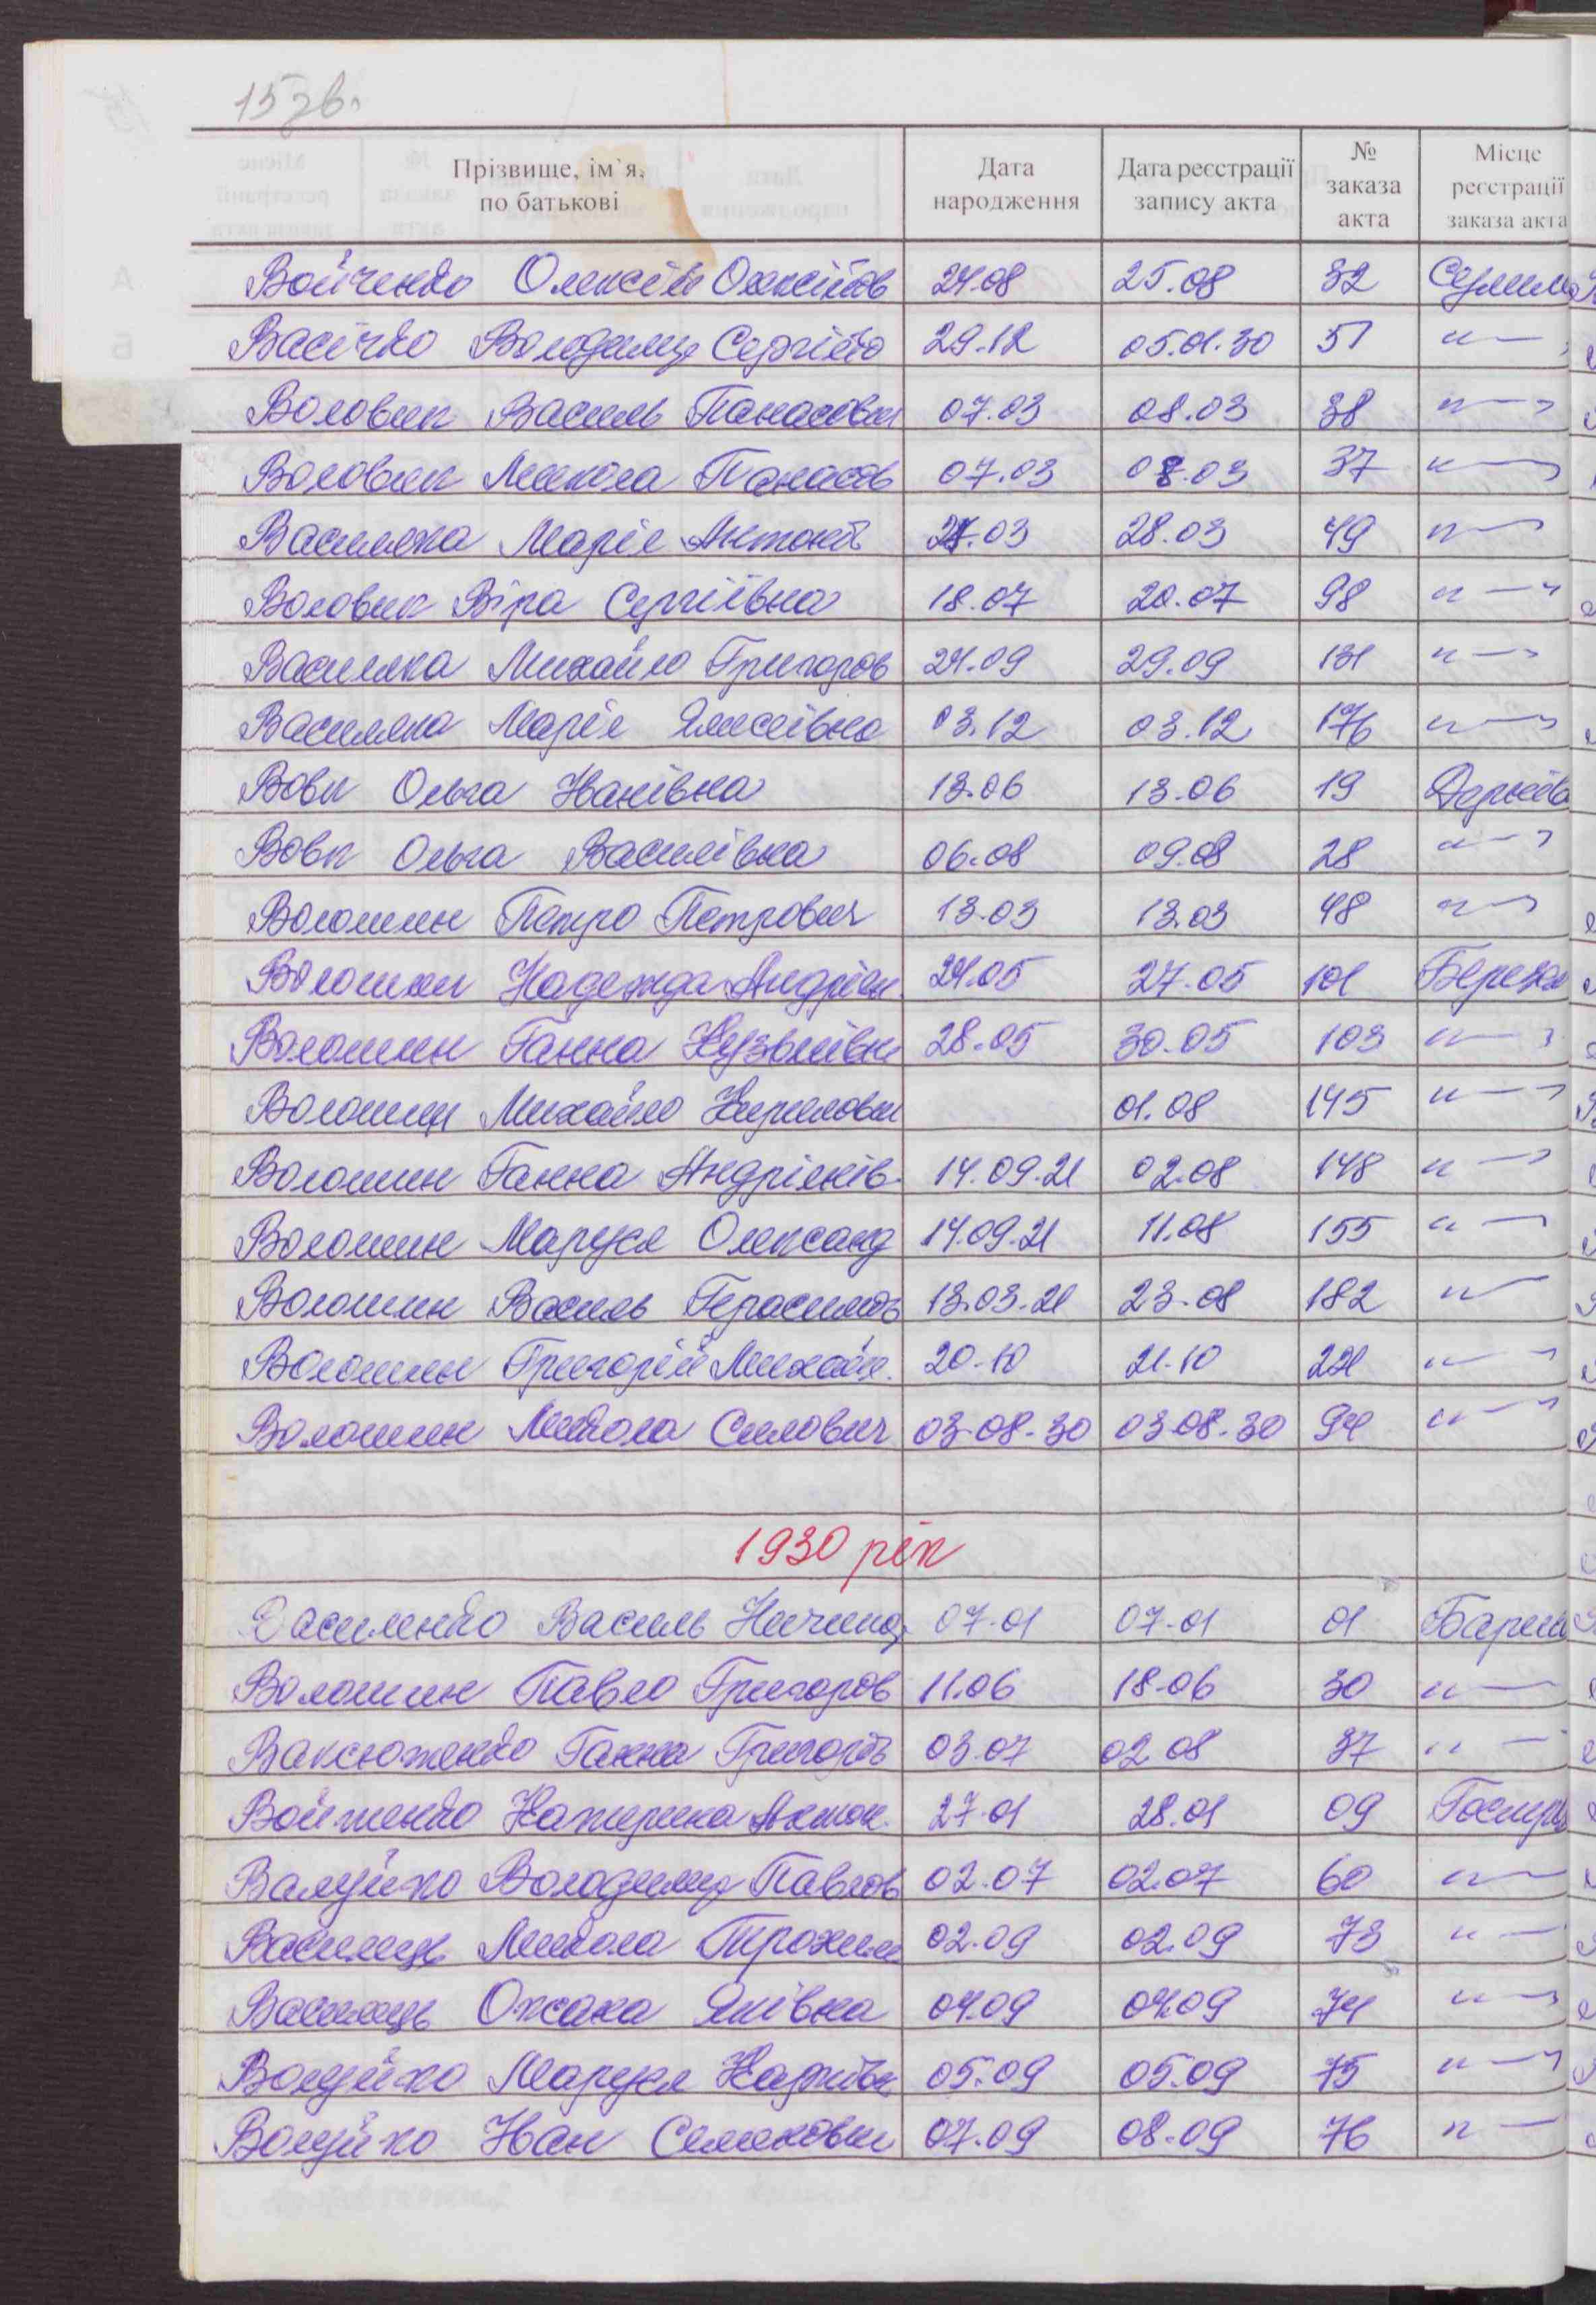 15 зв.
Прізвище, ім`я, по батькові Дата народження Дата реєстрації запису акта № заказа акта Місце реєстрації заказа акта
Войченко Олексій Олексійов 24.08 25.08 32
Васічко Володимир Сергійо 29.12 05.01.30 51 "—
Воловик Василь Панасови 07.03 08.03 38 "—"
Воловик Микола Панасов 07.03 08.03 37 "—"
Василяка Марія Антонів .03 28.03 49 "—"
Воловик Віра Сергіївна 18.07 20.07 98 "—"
Василяка Михайло Григоров 24.09 29.09 131 "—"
Василяка Марія 03.12 03.12 176 "—"
Вовк Ольга Іванівна 13.06 13.06 19
Вовк Ольга Василівна 06.08 09.08 28 "—"
Волошин Петро Петрович 13.03 13.03 48 "—"
Волошин Надежда Андріян. 24.05 27.05 101 Березан
Волошин Ганна Кузьмівн 28.05 30.05 103 "—"
Волошин Михайло Кирилови 01.08 145 "—"
Волошин Ганна Андріянів. 14.09.21 02.08 148 "—"
Волошин Маруся Олександ 14.09.21 11.08 155 "—"
Волошин Василь Герасимов 13.03.21 23.08 182 "—
Волошин Григорій Михайл. 20.10 21.10 221 "—"
Волошин Микола Силович 03.08.30 03.08.30 94 "—"
1930 рік
Василенко Василь Ничипор 07.01 07.01 01 Бариш
Волошин Павло Григоров 11.06 18.06 30 "—
Ваксюженко Ганна Григорів 03.07 02.08 37 "—
Войтенко Катерина Антон. 27.01 28.01 09
Валуйко Володимир Павлов 02.07 02.07 60 "—
Василець Микола Трохим 02.09 02.09 73 "—
Василець Оксана Яківна 04.09 04.09 74 "—"
Волуйко Маруся Карпівн 05.09 05.09 75 "—"
Волуйко Іван Семенови 07.09 08.09 76 "—